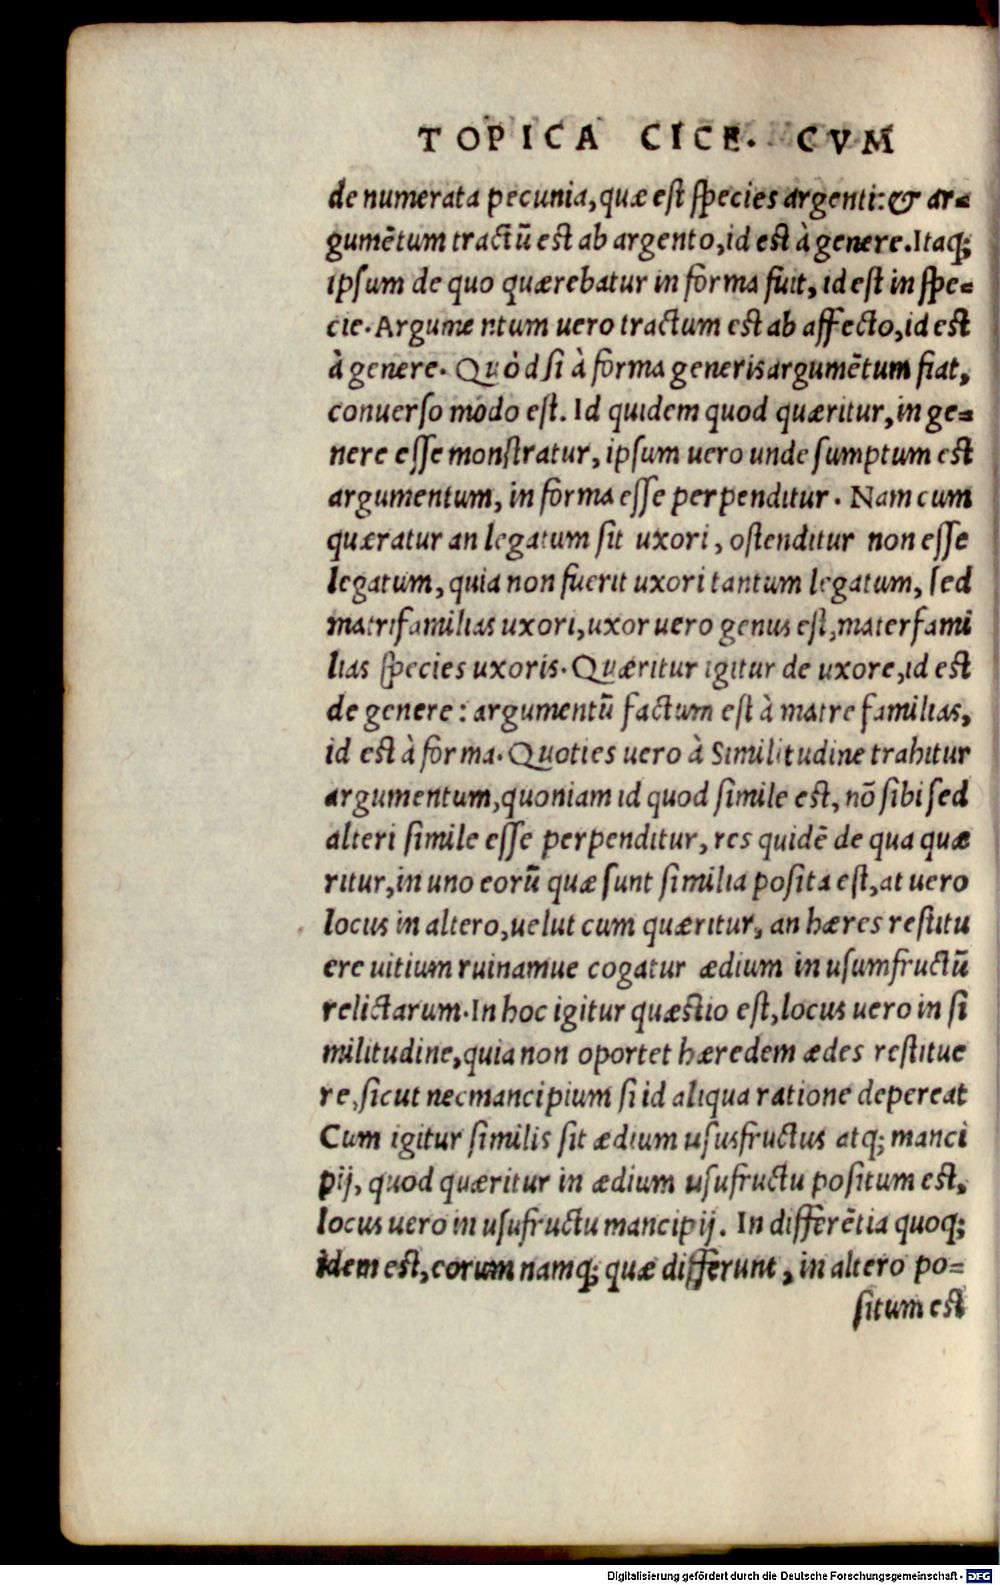 TOPICA CICE. CVM
de numerata pecunia, quæ est species argenti: & ar=
gumẽtum tractũ est ab argento, id est à genere. Itaq;
ipsum de quo quærebatur in forma fuit, id est in spe=
cie. Argumentum uero tractum est ab affecto, id est
à genere. Quòd si à forma generis argumẽtum fiat,
conuerso modo est. Id quidem quod quæritur, in ge=
nere esse monstratur, ipsum uero unde sumptum est
argumentum, in forma esse perpenditur. Nam cum
quæratur an legatum sit uxori, ostenditur non esse
legatum, quia non fuerit uxori tantum legatum, sed
matrifamilias uxori, uxor uero genus est, materfami
lias species uxoris. Quæritur igitur de uxore, id est
de genere: argumentũ factum est à matre familias,
id est à forma. Quoties uero à Similitudine trahitur
argumentum, quoniam id quod simile est, nõ sibi sed
alteri simile esse perpenditur, res quidẽ de qua quæ
ritur, in uno eorũ quæ sunt similia posita est, at uero
locus in altero, uelut cum quæritur, an hæres restitu
ere uitium ruinamue cogatur ædium in usumfructũ
relictarum. In hoc igitur quæstio est, locus uero in si
militudine, quia non oportet hæredem ædes restitue
re, sicut nec mancipium si id aliqua ratione depereat
Cum igitur similis sit ædium ususfructus atq; manci
pij, quod quæritur in ædium usufructu positum est,
locus uero in usufructu mancipij. In differẽtia quoq;
idem est, eorum namq; quæ differunt, in altero po=
situm est
Digitalisierung gefördert durch die Deutsche Forschungsgemeinschaft - DFG